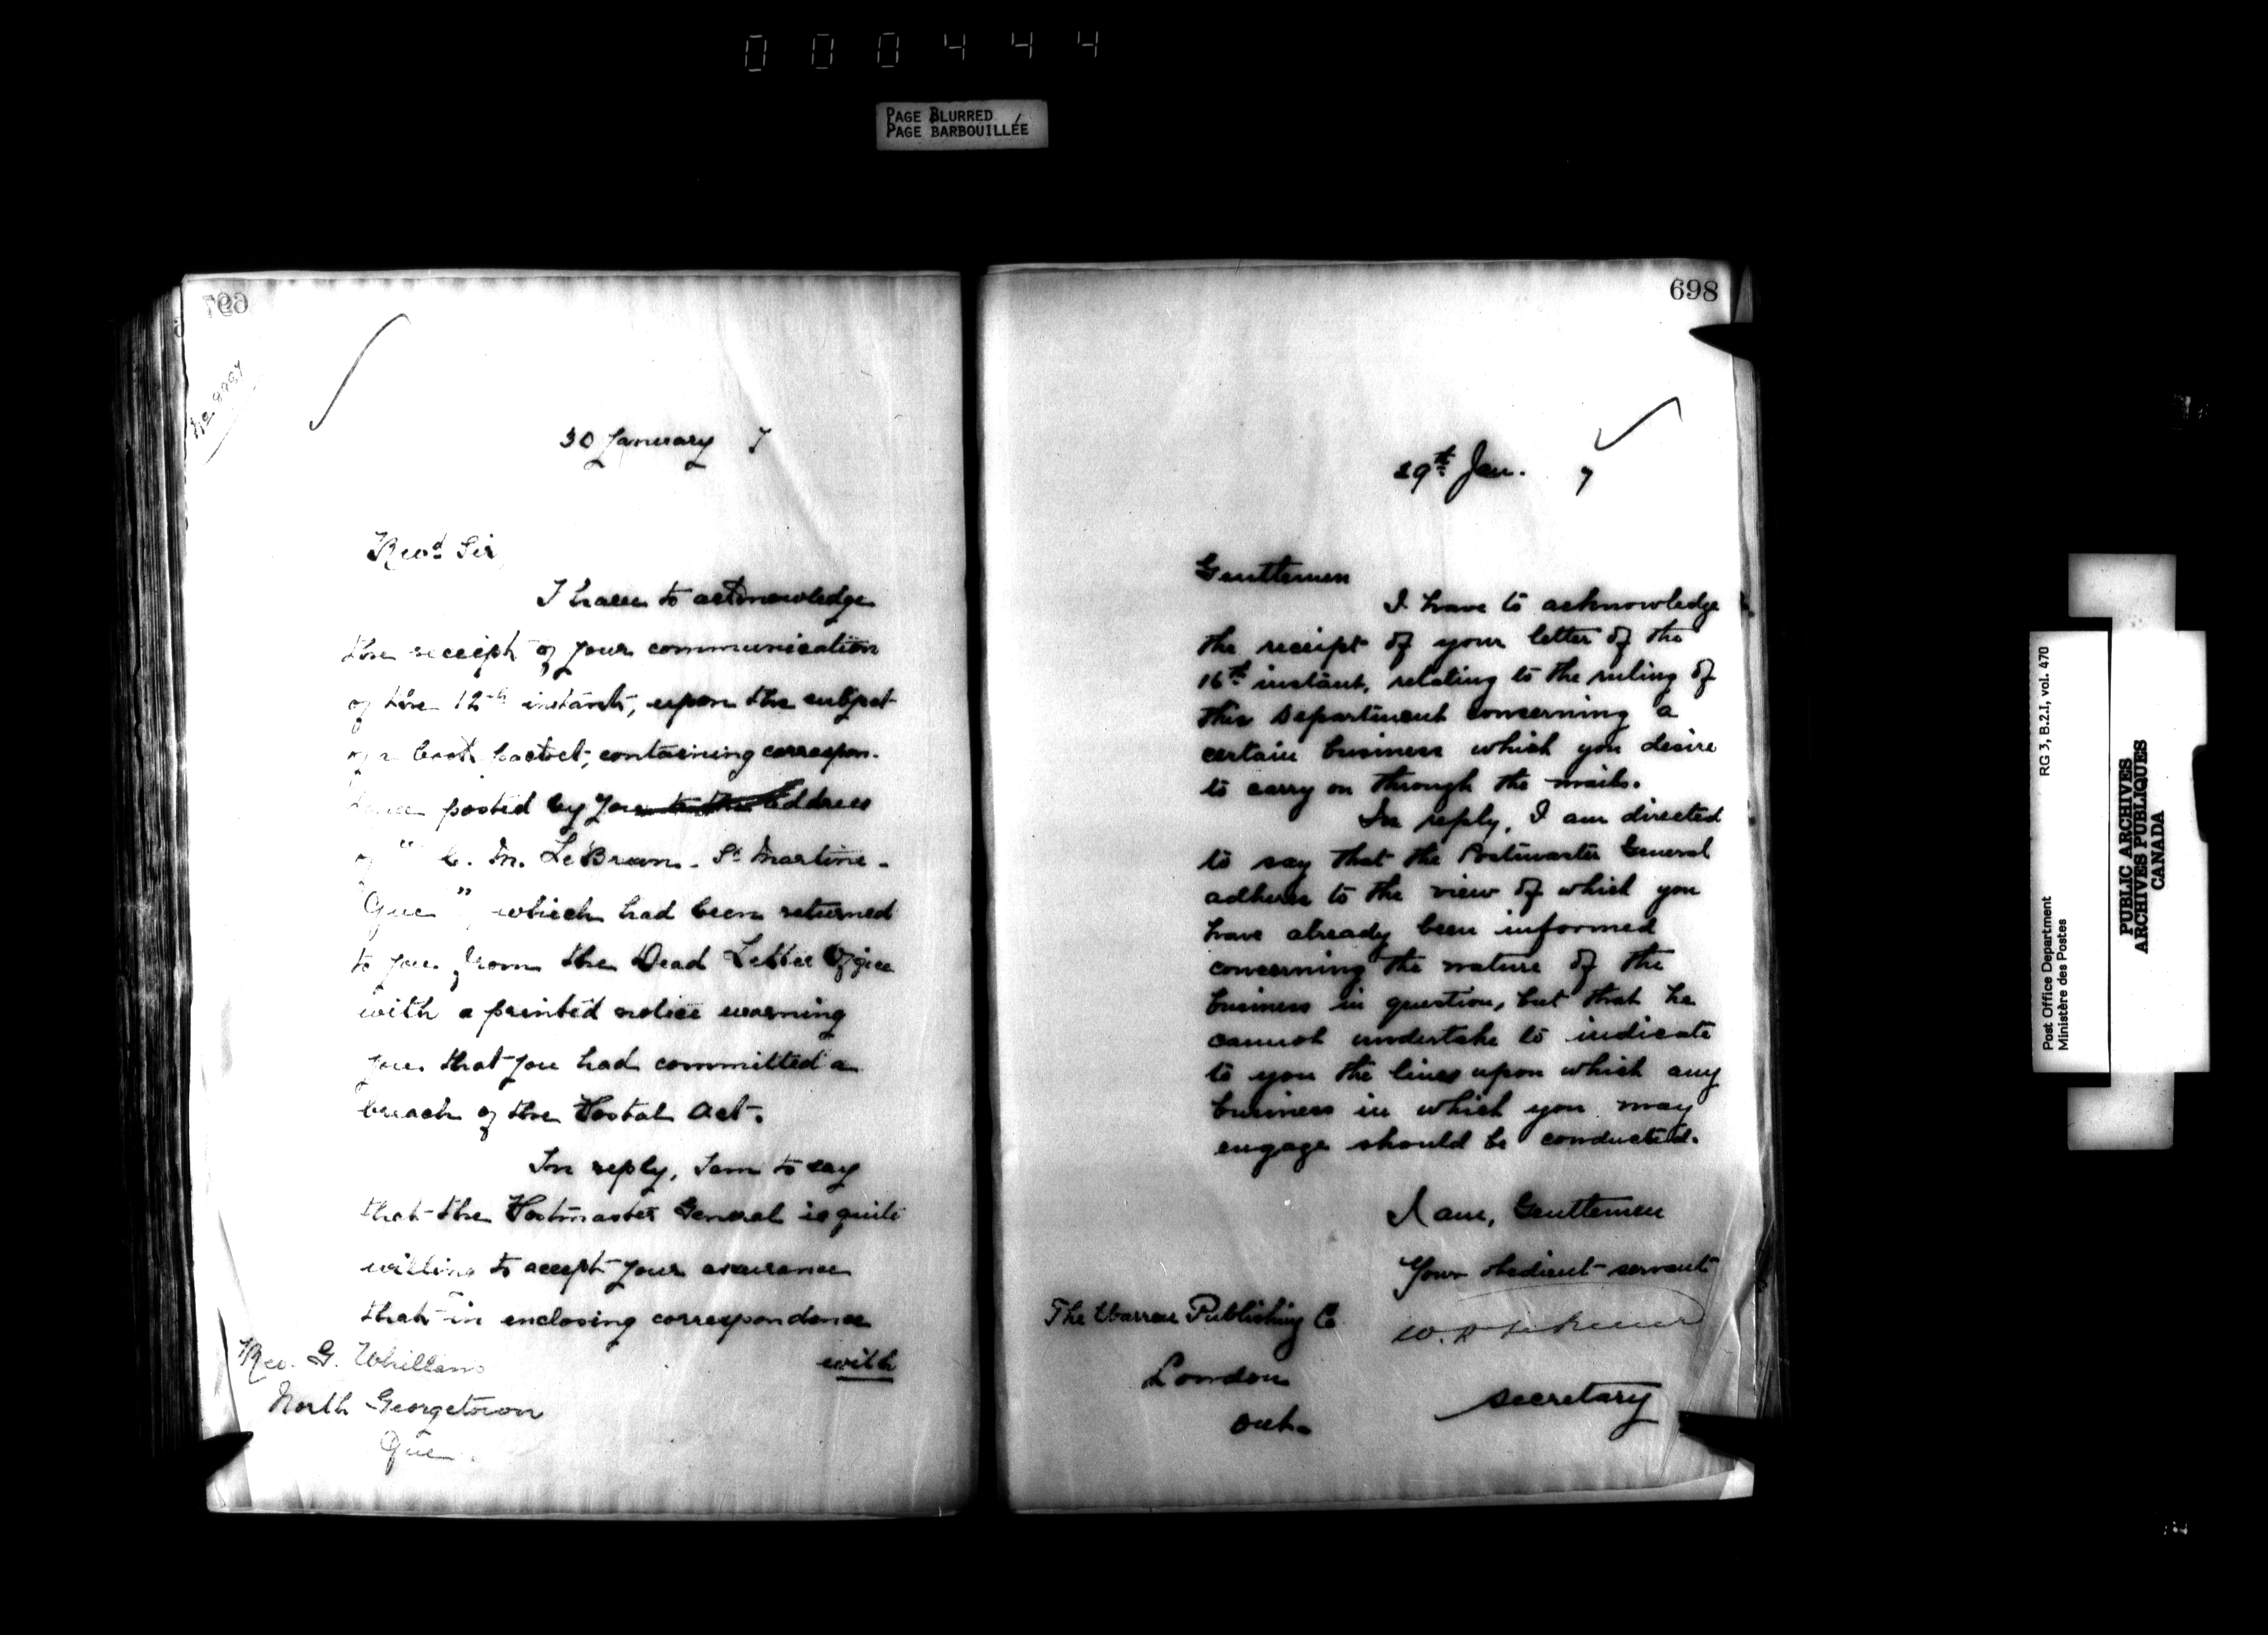 000444
PAGE BLURRED
PAGE BARBOUILLÉE
697
No 8784
30 January 7
Revd Sir,
I have to acknowledge
the receipt of your communication
of the 12th instant, upon the subject
of a book packet, containing correspon-
dence posted by you to the address
of "C. M. LeBrun - St Martine -
Que", which had been returned
to you from the Dead Letter Office
with a printed notice warning
you that you had committed a
breach of the Postal Act.
In reply, I am to say
that the Postmaster General is quite
willing to accept your assurance
that in enclosing correspondence
with
Rev. G. Whillans
North Georgetown
Que.
698
29th Jan. 7
Gentlemen
I have to acknowledge
the receipt of your letter of the
16th instant, relating to the ruling of
this Department concerning a
certain business which you desire
to carry on through the mails.
In reply, I am directed
to say that the Postmaster General
adheres to the view of which you
have already been informed
concerning the nature of the
business in question, but that he
cannot undertake to indicate
to you the lines upon which any
business in which you may
engage should be conducted.
I am, Gentlemen
Your obedient servant
W.
Secretary
The Warren Publishing Co
London
Ont.
RG 3, B.2.I, vol. 470
Post Office Department
Ministère des Postes
PUBLIC ARCHIVES
ARCHIVES PUBLIQUES
CANADA